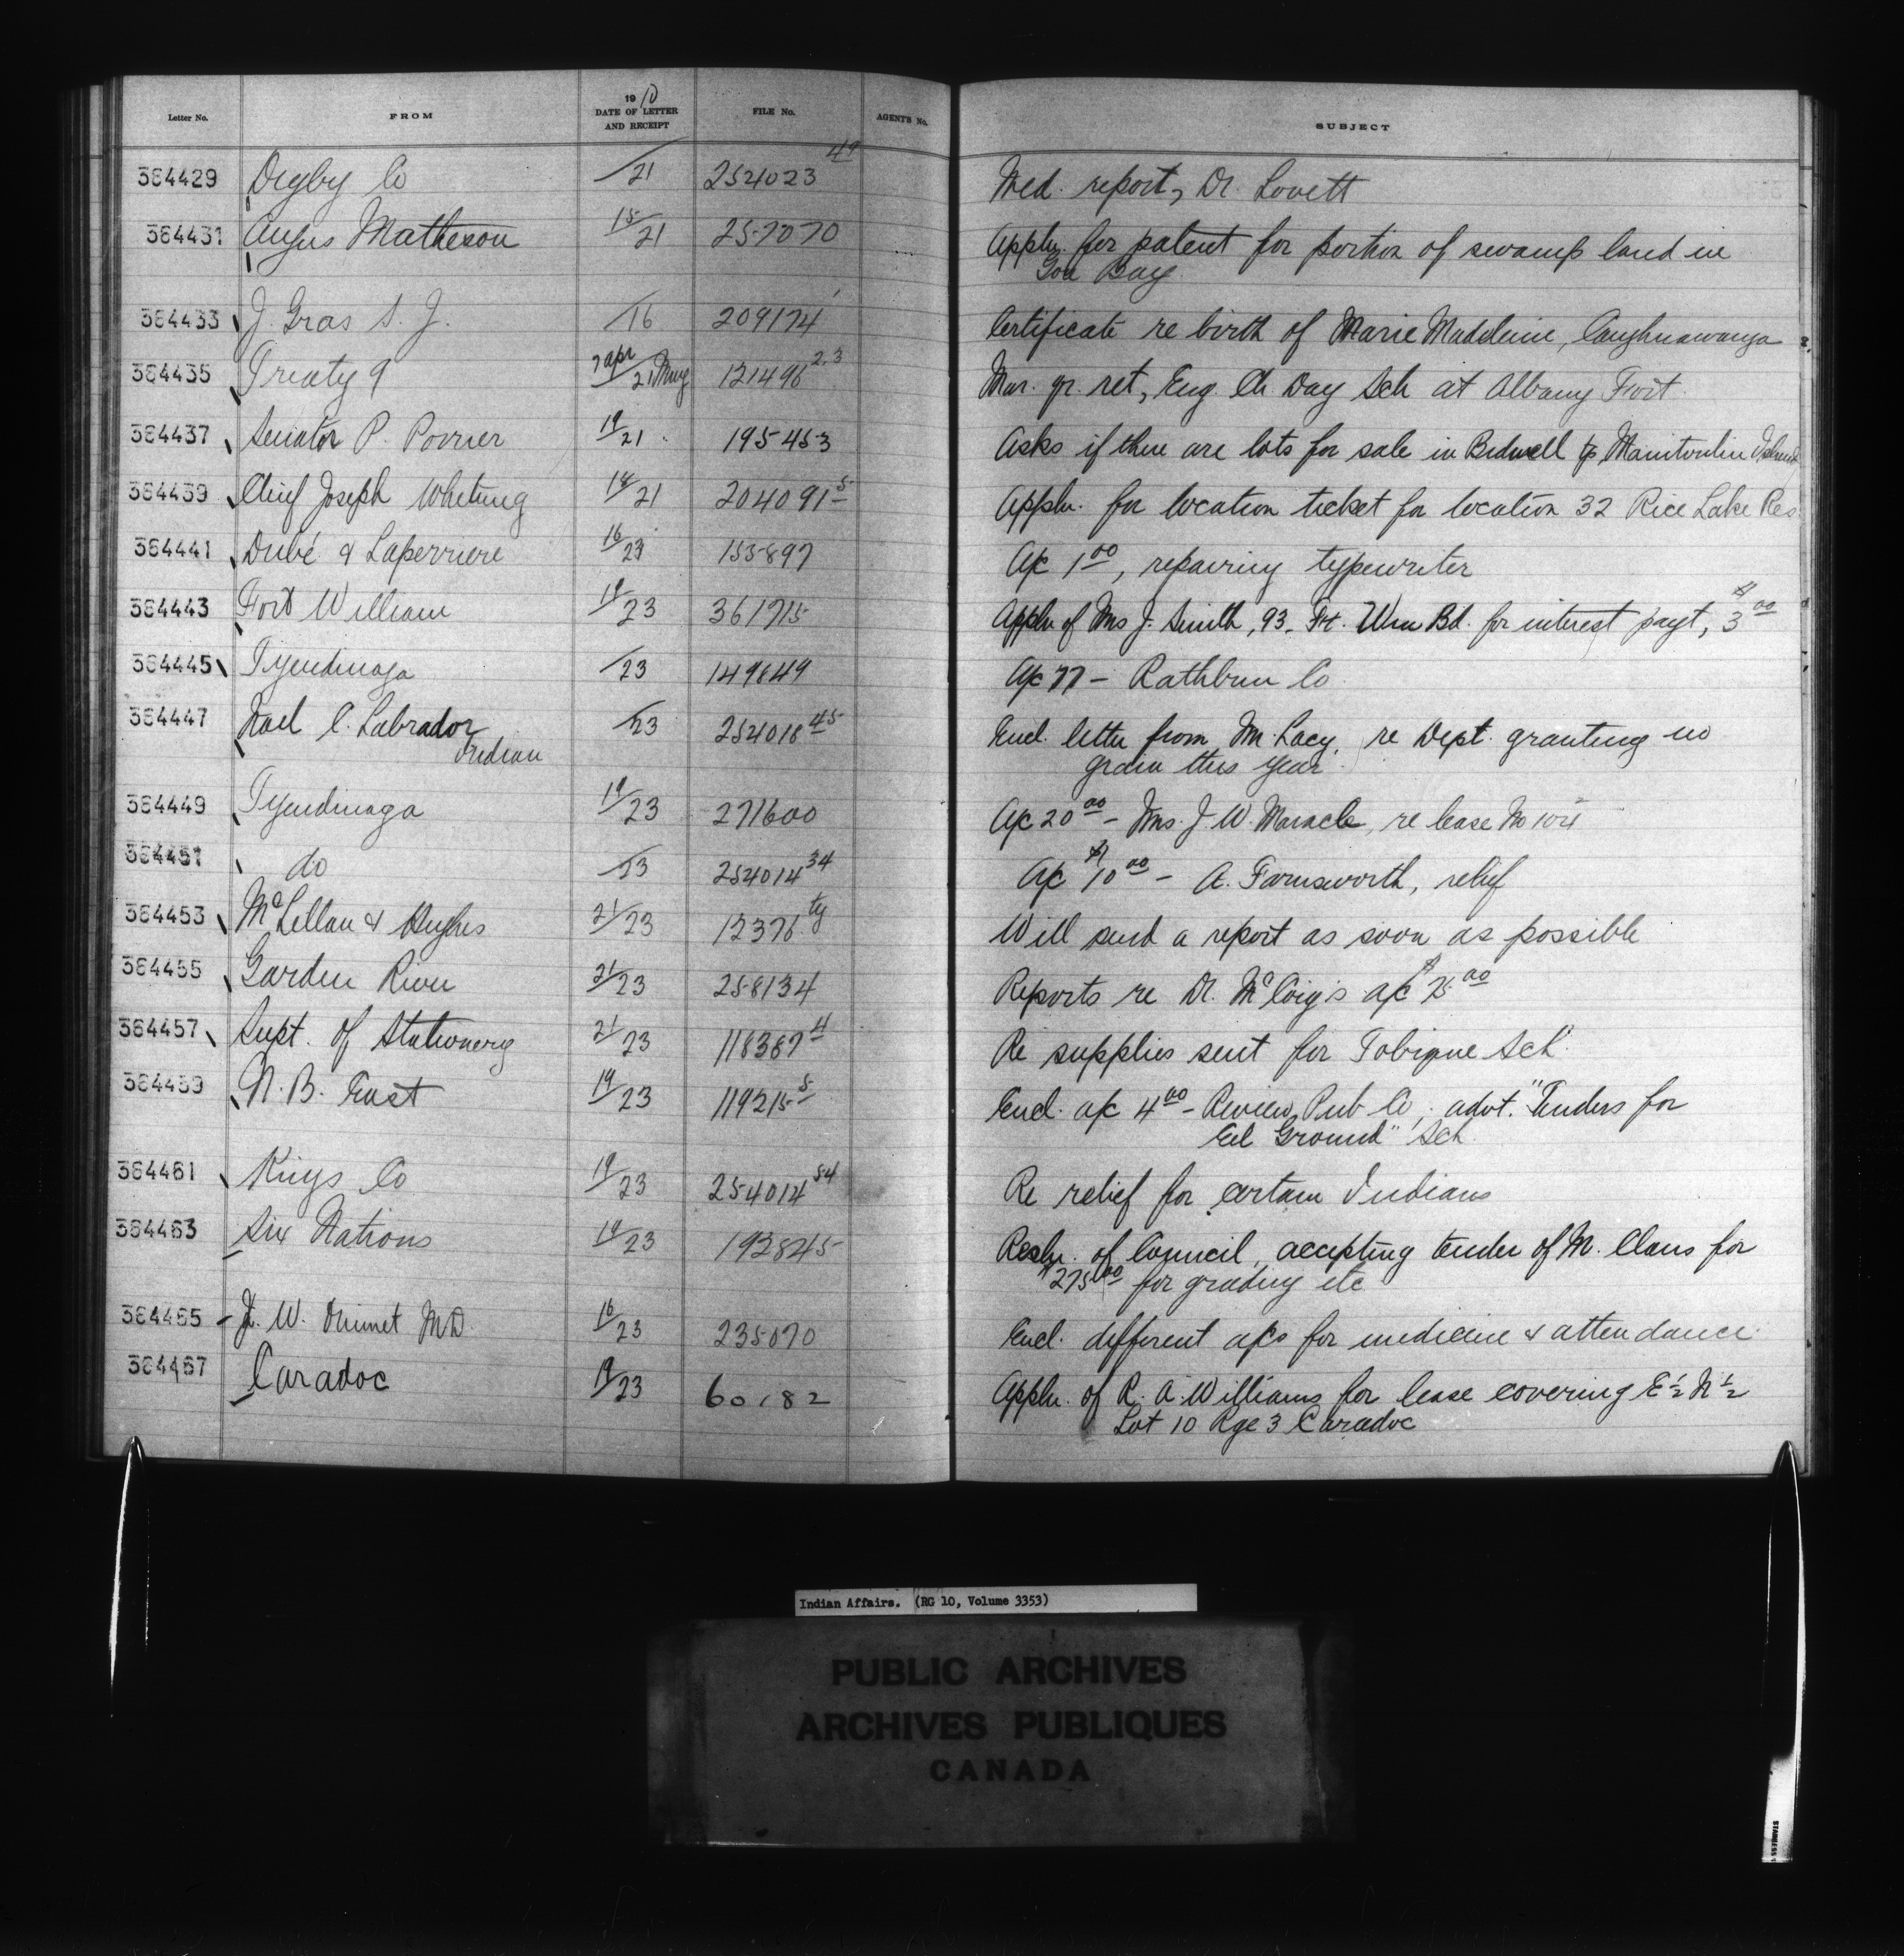 Letter No. FROM 1910 DATE OF LETTER AND RECEIPT FILE No. AGENTS No. SUBJECT
364429 Digby Co /21 254023 49 Med. report, Dr. Lovett
364431 Angus Matheson 15/21 257070 Appln. for patent for portion of swamp land in
Gore Bay
364433 J. Gras S. J. /16 209174 Certificate re birth of Marie Madeleine, Caughnawauga
364435 Treaty 9 7 apr/21 May 121496 23 Mar. qr. ret, Eng. Ch Day Sch at Albany Fort.
364437 Senator P. Poirier 19/21 195453 Asks if there are lots for sale in Bidwell tp Manitoulin Island
364439 Chief Joseph Whetung 18/21 204091 5 Appln. for location ticket for location 32 Rice Lake Res
364441 Dubé & Laperriere 16/23 155897 A/c 1 00, repairing typewriter
364443 Fort William 19/23 361715 Appln of Mrs J. Smith, 93, Ft. Wm Bd. for interest payt, $3 00
364445 Tyendinaga /23 149649 A/c 77 - Rathbun Co
364447 Noel C. Labrador /23 254018 45 Encl. letter from Mr. Lacy, re Dept. granting no
Indian grain this year
364449 Tyendinaga 19/23 271600 A/c 20 00 - Mrs. J. W. Maracle, re lease No
364451 do /23 254014 34 A/c $10 00 - A. Farnsworth, relief
364453 McLellan & Hughes 21/23 12376 ty Will send a report as soon as possible
364455 Garden River 21/23 258134 Reports re Dr. McCaig's a/c $75 00
364457 Supt. of Stationery 21/23 118387 4 Re supplies sent for Tobique Sch.
364459 N. B. East 19/23 119215 5 Encl. a/c 4 00 - Review Pub Co, advt. "Tenders for
Eel Ground" Sch.
364461 Kings Co 19/23 254014 54 Re relief for certain Indians
364463 Six Nations 19/23 192845 Resln. of Council, accepting tender of M. Claus for
$275 00 for grading etc
364465 W. Ouimet M.D. 16/23 235070 Encl. different a/cs for medicine & attendance.
364467 Caradoc 19/23 60182 Appln. of R. A. Williams for lease covering E 1/2 N 1/2
Lot 10 Rge 3 Caradoc
Indian Affairs. (RG 10, Volume 3353)
PUBLIC ARCHIVES
ARCHIVES PUBLIQUES
CANADA